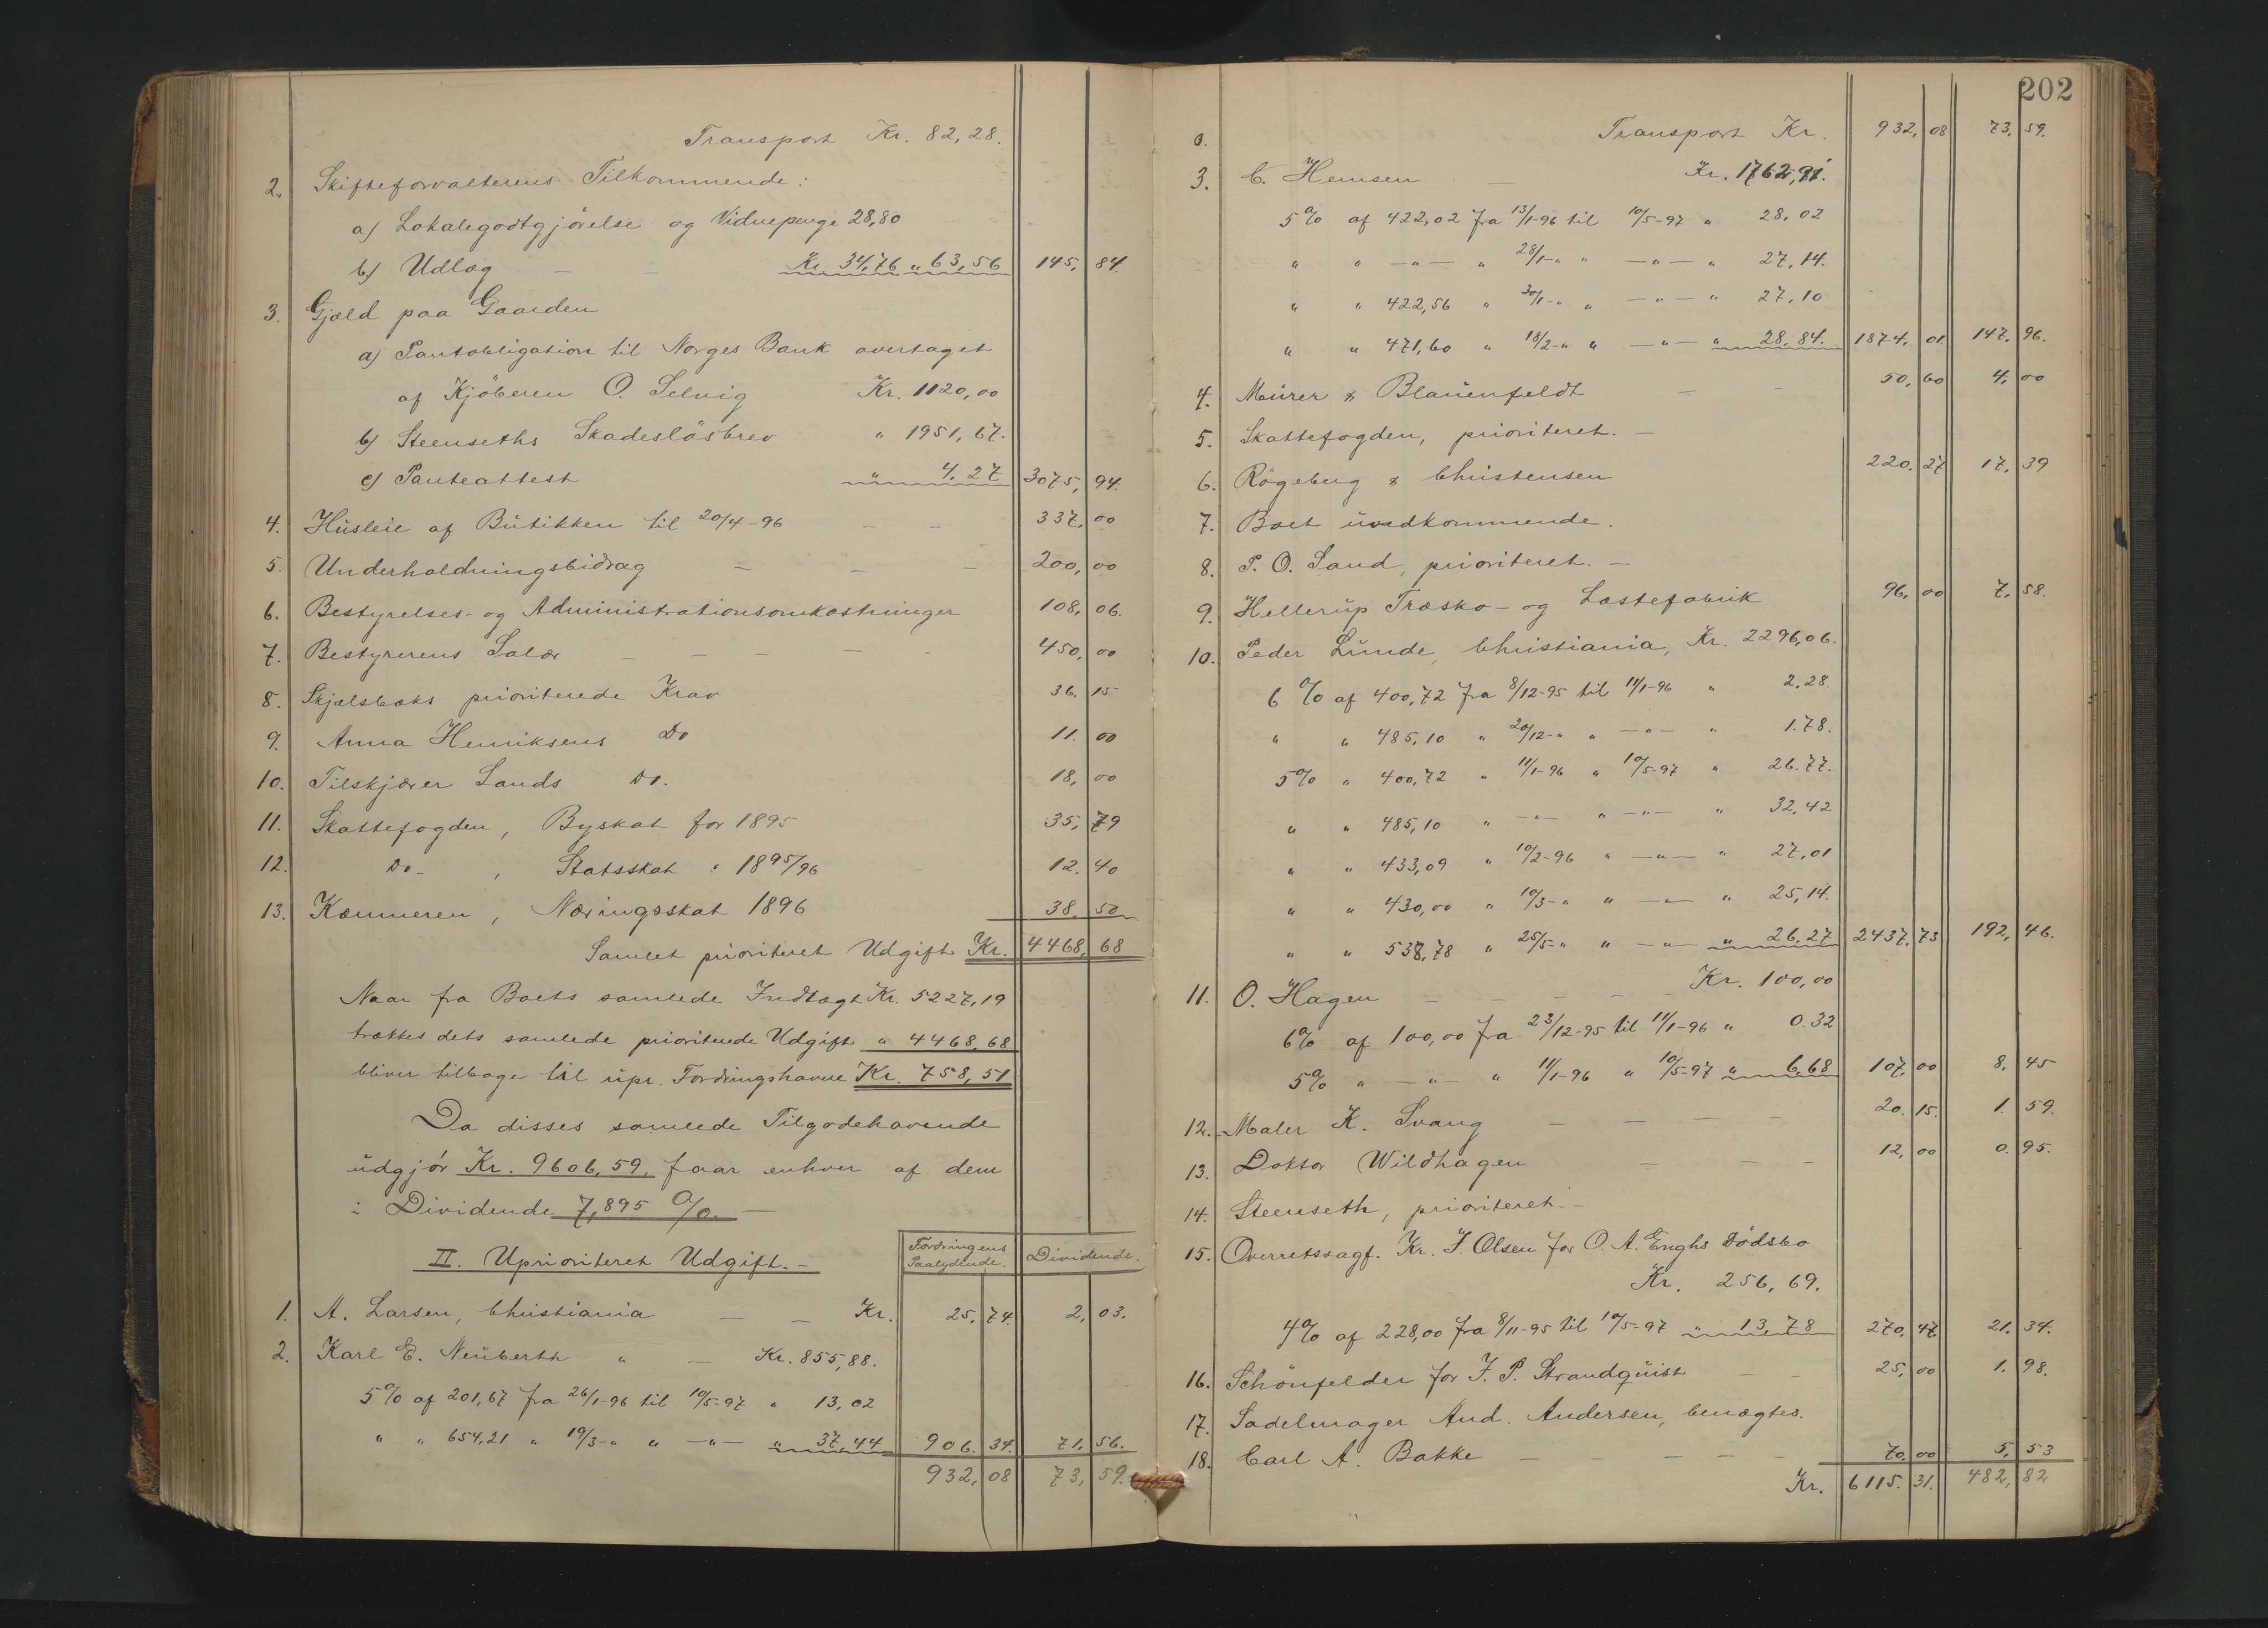 Transport Kr. 82,28.
2. Skifteforvalterens Tilkommende:
a) Lokalegodtgjörelse og Vidnepenge 28,80
b) Udlæg — — Kr. 34,76 „ 63,56 145, 84.
3. Gjæld paa Gaarden
a) Pantobligation til Norges Bank overtaget
af Kjöberen O. Selvig Kr. 1120,00
b) Steenseths Skadeslösbrev „ 1951,67.
c) Panteattest „ 4,27 3075, 94.
4. Husleie af Butikken til 20/4-96 — — 337, 00
5. Underholdningsbidrag — — — 200, 00
6. Bestyrelses- og Administrationsomkostninger 108, 06.
7. Bestyrerens Salær — — — — - 450, 00
8. Skjælsbæks prioriterede Krav 36. 15
9. Anna Henriksens Do 11. 00
10. Tilskjærer Sands Do. 18, 00
11. Skattefogden, Byskat for 1895 35, 79
12. Do- , Statsskat „ 1895/96 12. 40
13. Kæmneren, Næringsskat 1896 38. 50
Samlet prioriteret Udgift Kr. 4468, 68
Naar fra Boets samlede Indtægt Kr. 5227,19
trækkes dets samlede prioriterede Udgift „ 4468,68
bliver tilbage til upr. Fordringshavere Kr. 758,51
Da disses samlede Tilgodehavende
udgjör Kr. 9606,59, faar enhver af dem
i Dividende 7,895 %. —
II. Uprioriteret Udgift. - Fordringens Paalydende. Dividende.
1. A. Larsen, Christiania — — Kr. 25, 74. 2, 03.
2. Karl E. Neuberth „ — Kr. 855,88.
5% af 201,67 fra 26/1-96 til 10/5-97 „ 13,02
„ „ 654,21 „ 19/3-„ „ —„— „ 37,44 906. 34. 71, 56.
932, 08 73, 59.
202
Transport Kr. 932, 08 73, 59.
3. C. Hemsen — Kr. 1762,91.
5% af 422,02 fra 13/1-96 til 10/5-97 „ 28,02
„ „ —„— „ 28/1-„ „ —„— „ 27,14.
„ „ 422,56 „ 30/1-„ „ —„— „ 27,10
„ „ 471,60 „ 18/2-„ „ —„— „ 28,84. 1874, 01. 147, 96.
4. Meürer & Blauenfeldt — - 50, 60 4, 00
5. Skattefogden, prioriteret. —
6. Rögeberg & Christensen 220. 27 17, 39
7. Boet uvedkommende.
8. P. O. Sand, prioriteret. —
9. Hellerup Træsko- og Læstefabrik 96, 00 7, 58.
10. Peder Lunde, Christiania, Kr. 2296,06.
6 % af 400,72 fra 8/12-95 til 11/1-96 „ 2,28.
„ „ 485,10 „ 20/12-„ „ —„— „ 1.78.
5% „ 400,72 „ 11/1-96 „ 10/5-97 „ 26.77.
„ „ 485,10 „ —„— „ —„— „ 32,42
„ „ 433,09 „ 10/2-96 „ —„— „ 27,01
„ „ 430,00 „ 10/3-„ „ —„— „ 25,14.
„ „ 538,78 „ 25/5-„ „ —„— „ 26,27 2437, 73 192, 46.
11. O. Hagen — — — — — Kr. 100,00
6% af 100,00 fra 23/12-95 til 11/1-96 „ 0.32
5% „ —„— „ 11/1-96 „ 10/5-97 „ 6,68 107, 00 8, 45
12. Maler K. Svang — — — - 20. 15. 1. 59.
13. Doktor Wildhagen — — - 12, 00 0. 95.
14. Steenseth, prioriteret. -
15. Overretssagf. Kr. F. Olsen for O. A. Enghs Dödsbo
Kr. 256,69.
4% af 228,00 fra 8/11-95 til 10/5-97 „ 13,78 270, 47. 21. 34.
16. Schönfelder for F. P. Strandquist — — 25, 00 1. 98.
17. Sadelmager And. Andersen, benægtes.
18. Carl A. Bakke — — — — — - 70, 00 5, 53
Kr. 6115. 31. 482, 82